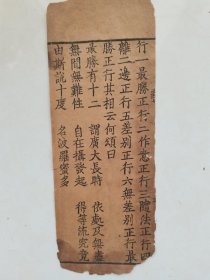 行一最勝正行二作意正行三隨法正行四
離二邊正行五差別正行六無差別正行最
勝正行其相云何頌曰
最勝有十二　謂廣大長時　依處及無盡
無間無難性　自在攝發起　得等流究竟
由斯說十度　名波羅蜜多